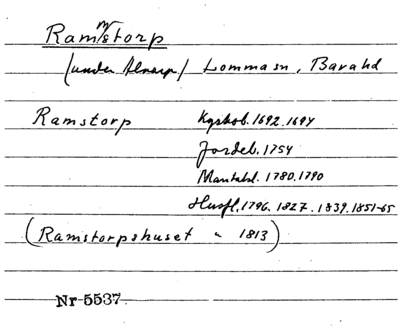 Rammstorp
(under Alnarp) Lomma sn, Bara hd
Ramstorp Kyrkob. 1692. 1694
Jordeb. 1754
Mantalsl. 1780. 1790
Husfl. 1796. 1827. 1839. 1851-65
(Ramstorpshuset " 1813)
Nr 5537